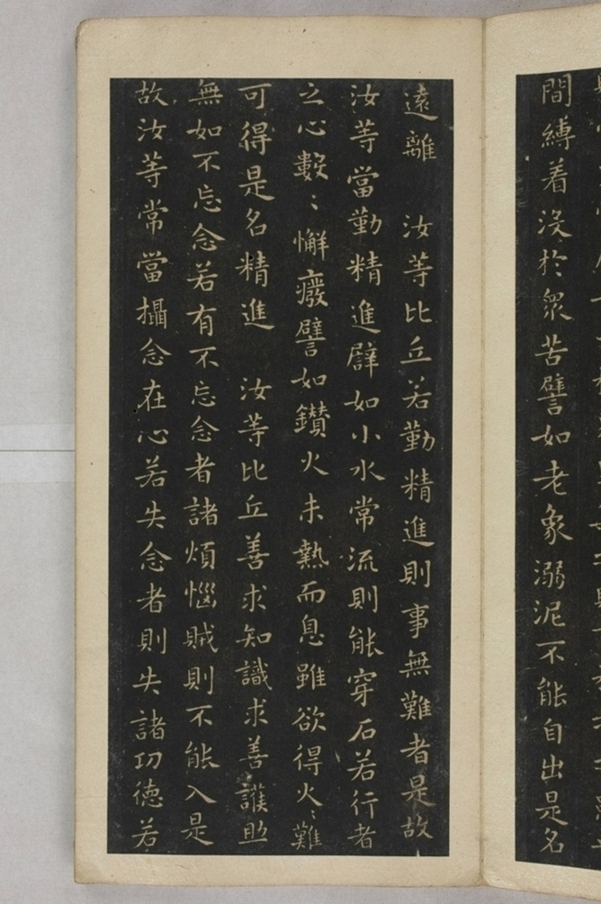 間縛着没於衆苦譬如老象溺泥不能自出是名
遠離 汝等比丘若勤精進則事無難者是故
汝等當勤精進辟如小水常流則能穿石若行者
之心數〻懈癈譬如鑚火未熱而息雖欲得火〻難
可得是名精進 汝等比丘善求知識求善護助
無如不忘念若有不忘念者諸煩惱賊則不能入是
故汝等常當攝念在心若失念者則失諸功德若